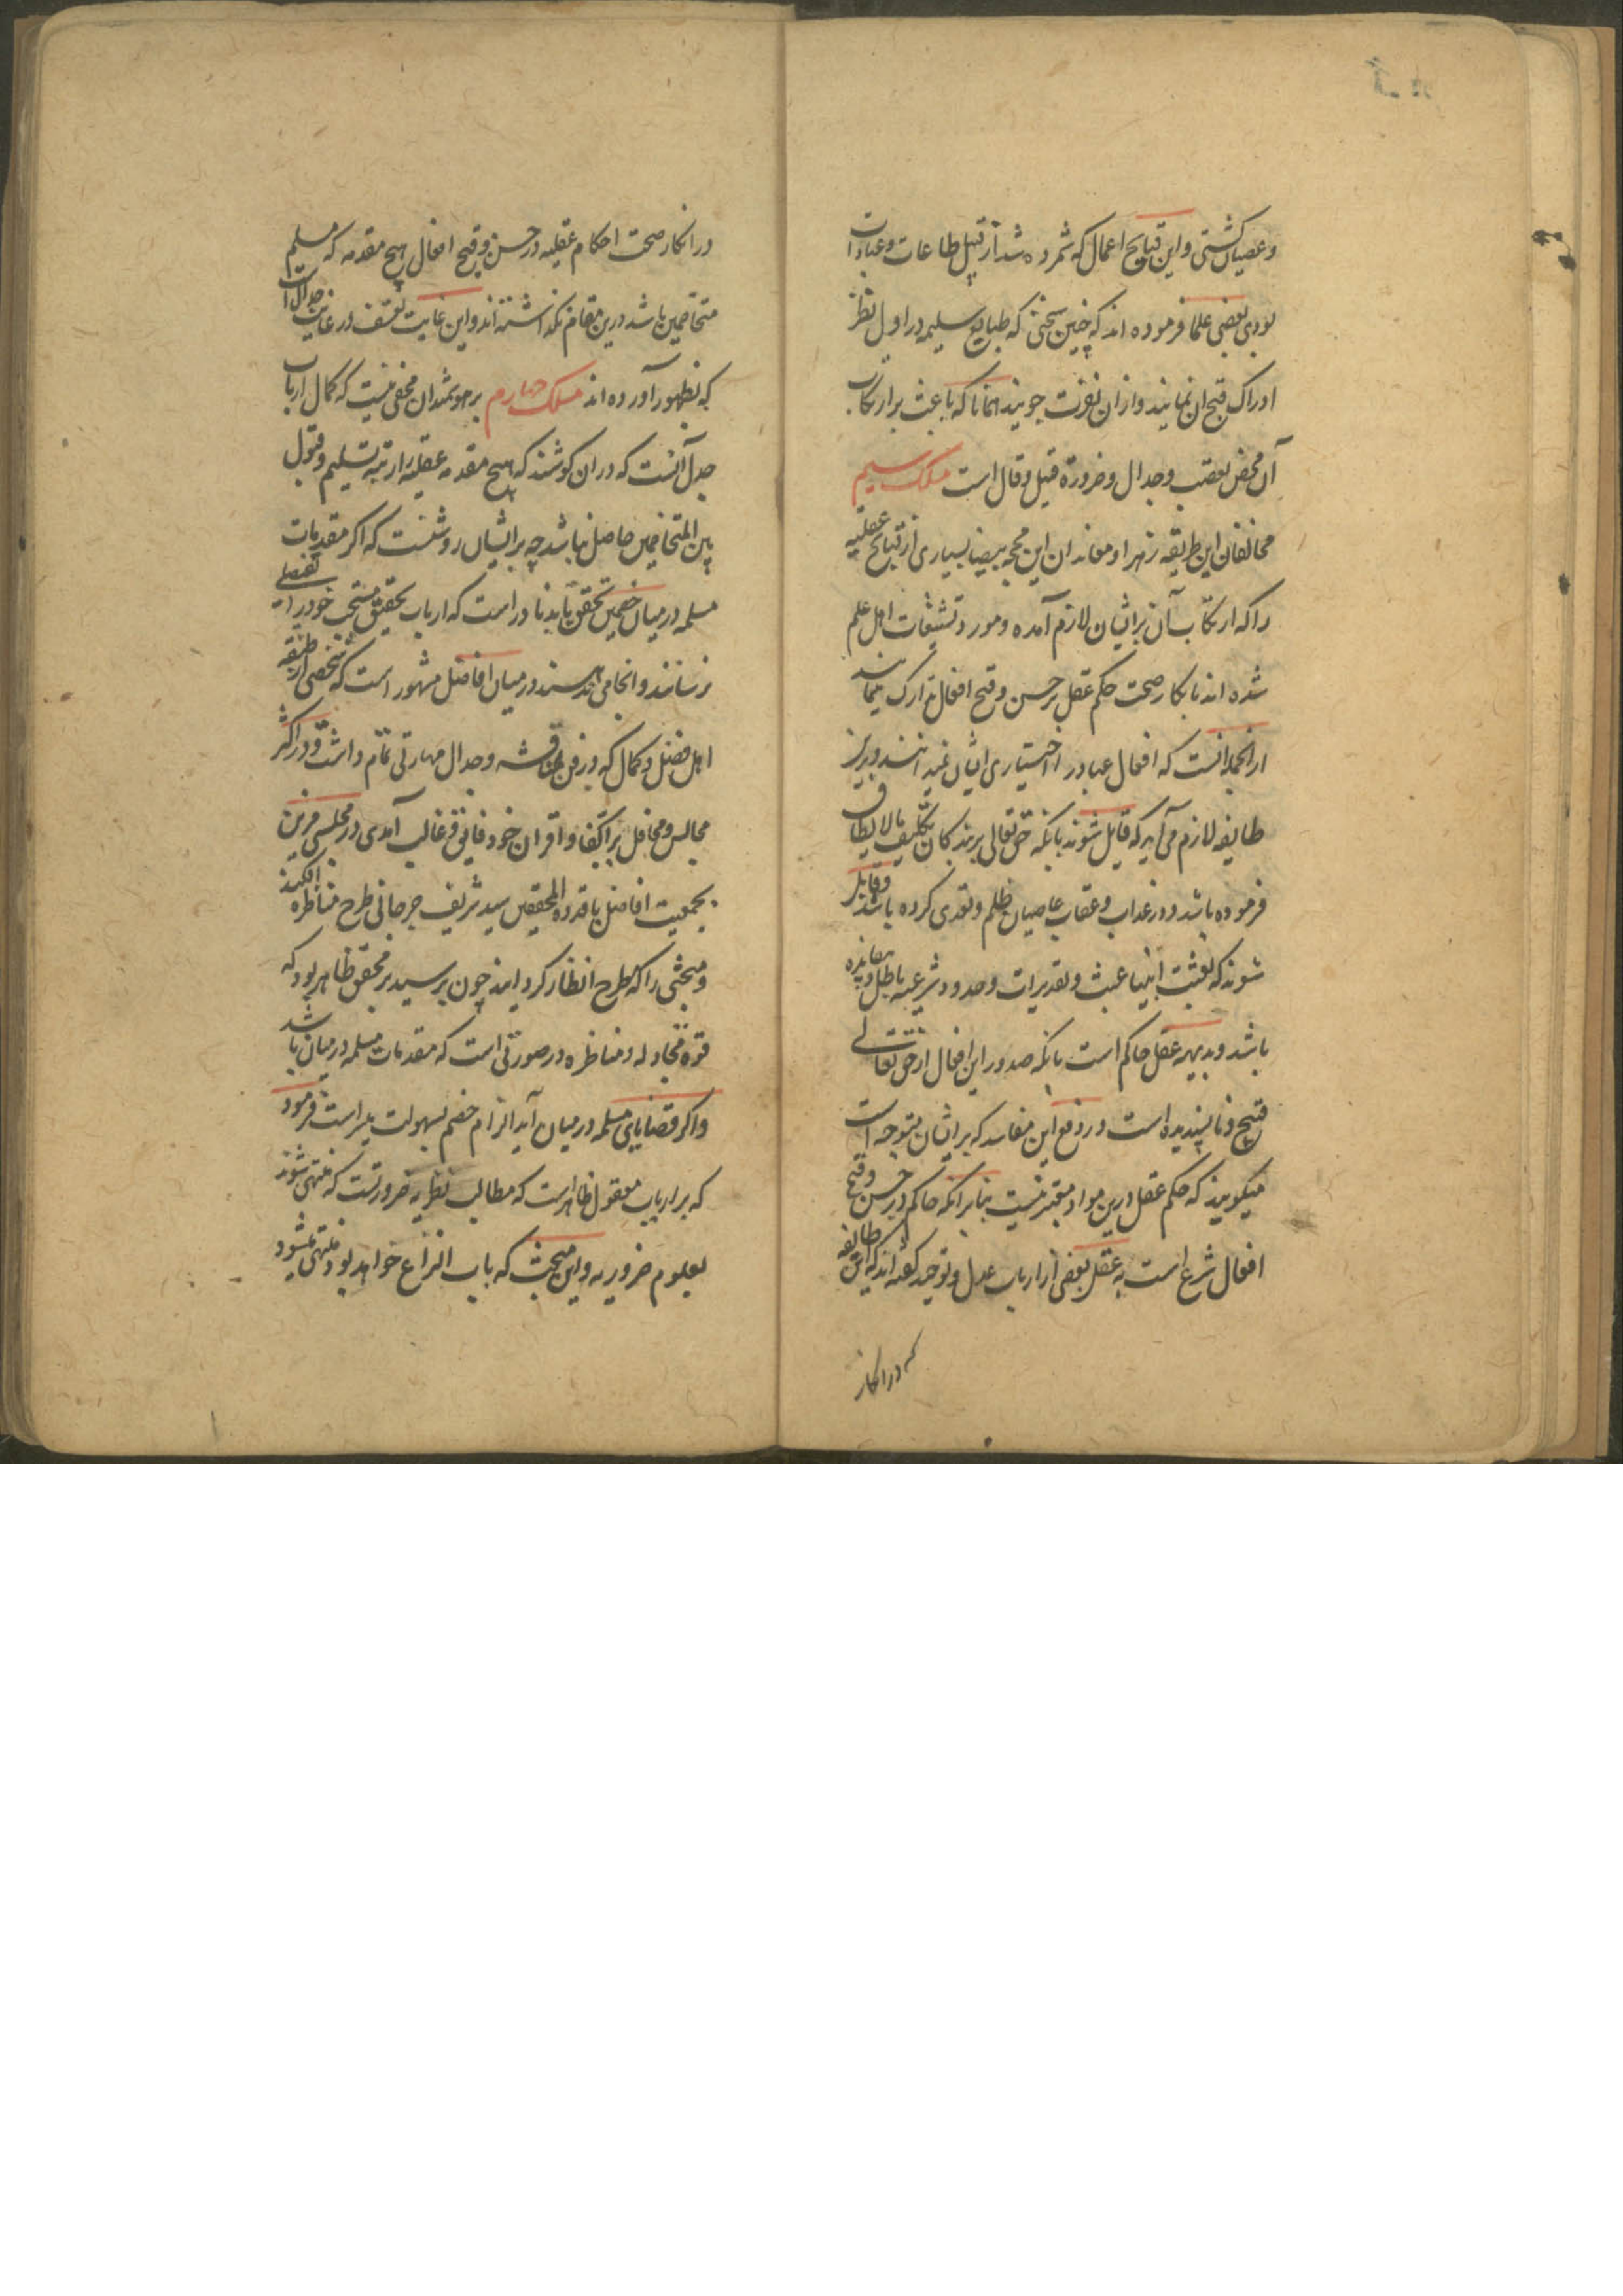 وعصیان کشتی واین قبایح اعمال که شمرده شد از قبیل طاعات وعبادات
بودی بعضی علما فرموده اند که چنین سخنی که طبایع سلیمه در اول نظر
ادراک قبح ان نمایند وازان نفرت جویند همانا که باعث بر ارتکاب
آن محض تعصب وجدال وضرورة قیل وقال است مسلک سیم
مخالفان این طریقه زهرا ومعاندان این محجه بیضا بسیاری از قبایح عقلیه
را که ارتکاب آن برایشان لازم آمده ومورد تشنیعات اهل علم
شده اند بانکار صحت حکم عقل بر حسن وقبح افعال تدارک مینمایند
ازانجمله انست که افعال عباد را اختیاری ایشان نمیدانند وبرین
طایفه لازم می آید که قایل شوند بانکه حق تعالی بربندکان تکلیف مالایطاق
فرموده باشد ودر عذاب وعقاب عاصیان ظلم وتعدی کرده باشد وقایل
شوند که بعثت انبیا عبث وتقدیرات وحدود شرعیه باطل وبیفایده
باشد وبدیهه عقل حاکم است بانکه صدور این افعال از حق تعالی
قبیح وناپسندیده است ودر دفع این مفاسد که برایشان متوجه است
میکویند که حکم عقل درین مواد معتبر نیست بنابرانکه حاکم در حسن وقبح
افعال شرع است نه عقل بعضی از ارباب عدل وتوحید کفته اند که این طایفه
که در انکار
در انکار صحت احکام عقلیه در حسن وقبح افعال هیچ مقدمه که مسلم
متخاصمین باشد درین مقام نکذاشته اند واین غایت تعسف در غایت جدال است
که بظهور آورده اند مسلک چهارم بر هوشمندان مخفی نیست که کمال ارباب
جدل آنست که دران کوشند که هیچ مقدمه عقلیه را رتبه تسلیم وقبول
بین المتخاصمین حاصل نباشد چه برایشان روشنست که اکر مقدمات
مسلمه در میان خصمین تحقق یابد نادر است که ارباب تحقیق مستحب خود را بتفصیلی
نرسانند وانجامی ندهند در میان افاضل مشهور است که شخصی از طبقه
اهل فضل وکمال که در فن مناقشه وجدال مهارتی تمام داشت ودر اکثر
مجالس ومحافل بر اکفا واقران خود فایق وغالب آمدی در مجلسی مزین
بجمعیت افاضل با قدوه المحققین سید شریف جرجانی طرح مناظره افکند
ومبحثی را که مطرح انظار کردانید چون بر سید محقق ظاهر بود که
قوة مجادله ومناظره در صورتی است که مقدمات مسلمه در میان باشد
واکر قضایای مسلمه در میان آید الزام خصم بسهولت میسر است فرمود
که بر ارباب معقول ظاهر است که مطالب نظریه ضرورتست که منتهی شوند
بعلوم ضروریه واین مبحث که باب النزاع خواهد بود منتهی میشود